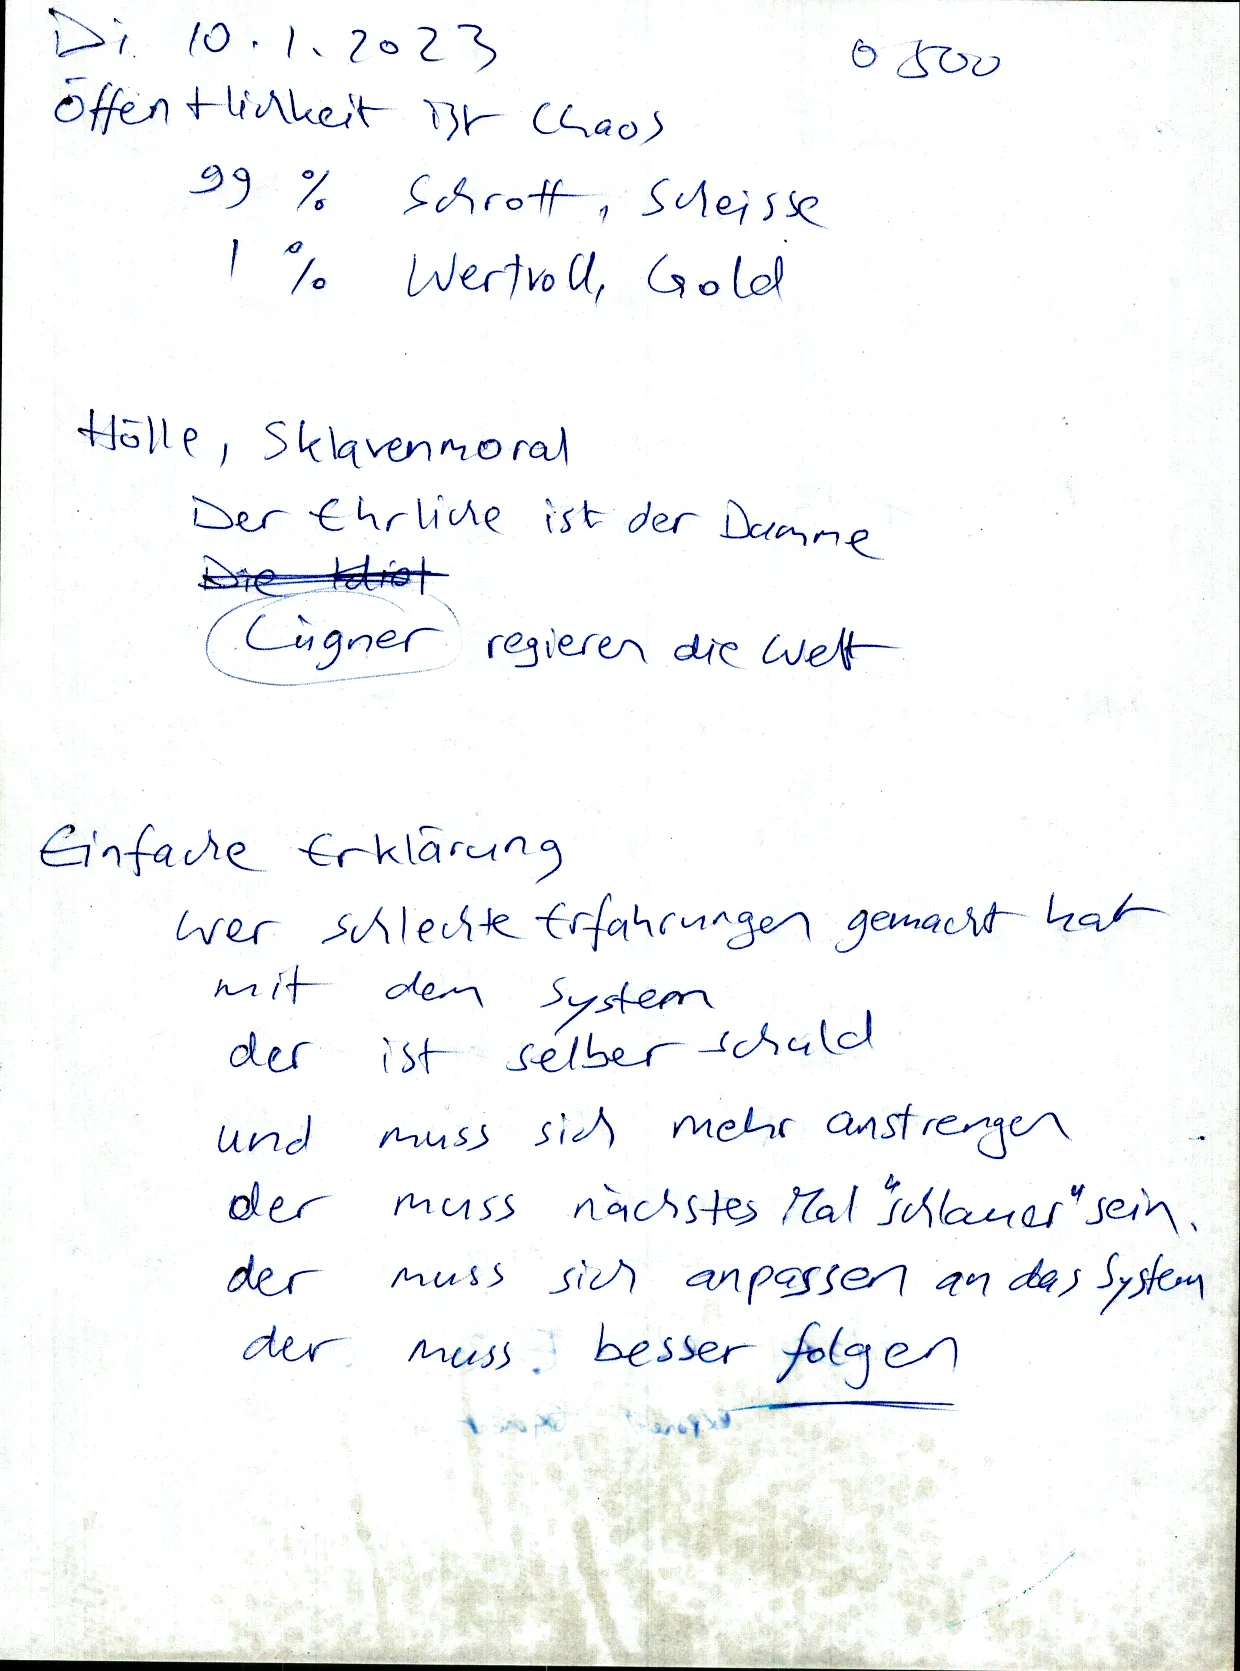 Di 10.1.2023 0500
Öffentlichkeit ist Chaos
99 % Schrott, Scheisse
1 % Wertvoll, Gold
Hölle, Sklavenmoral
Der Ehrliche ist der Dumme
Die Idiot
Lügner regieren die Welt
Einfache Erklärung
wer schlechte Erfahrungen gemacht hat
mit dem System
der ist selber schuld
und muss sich mehr anstrengen
der muss nächstes Mal "schlauer" sein.
der muss sich anpassen an das System
der muss besser folgen